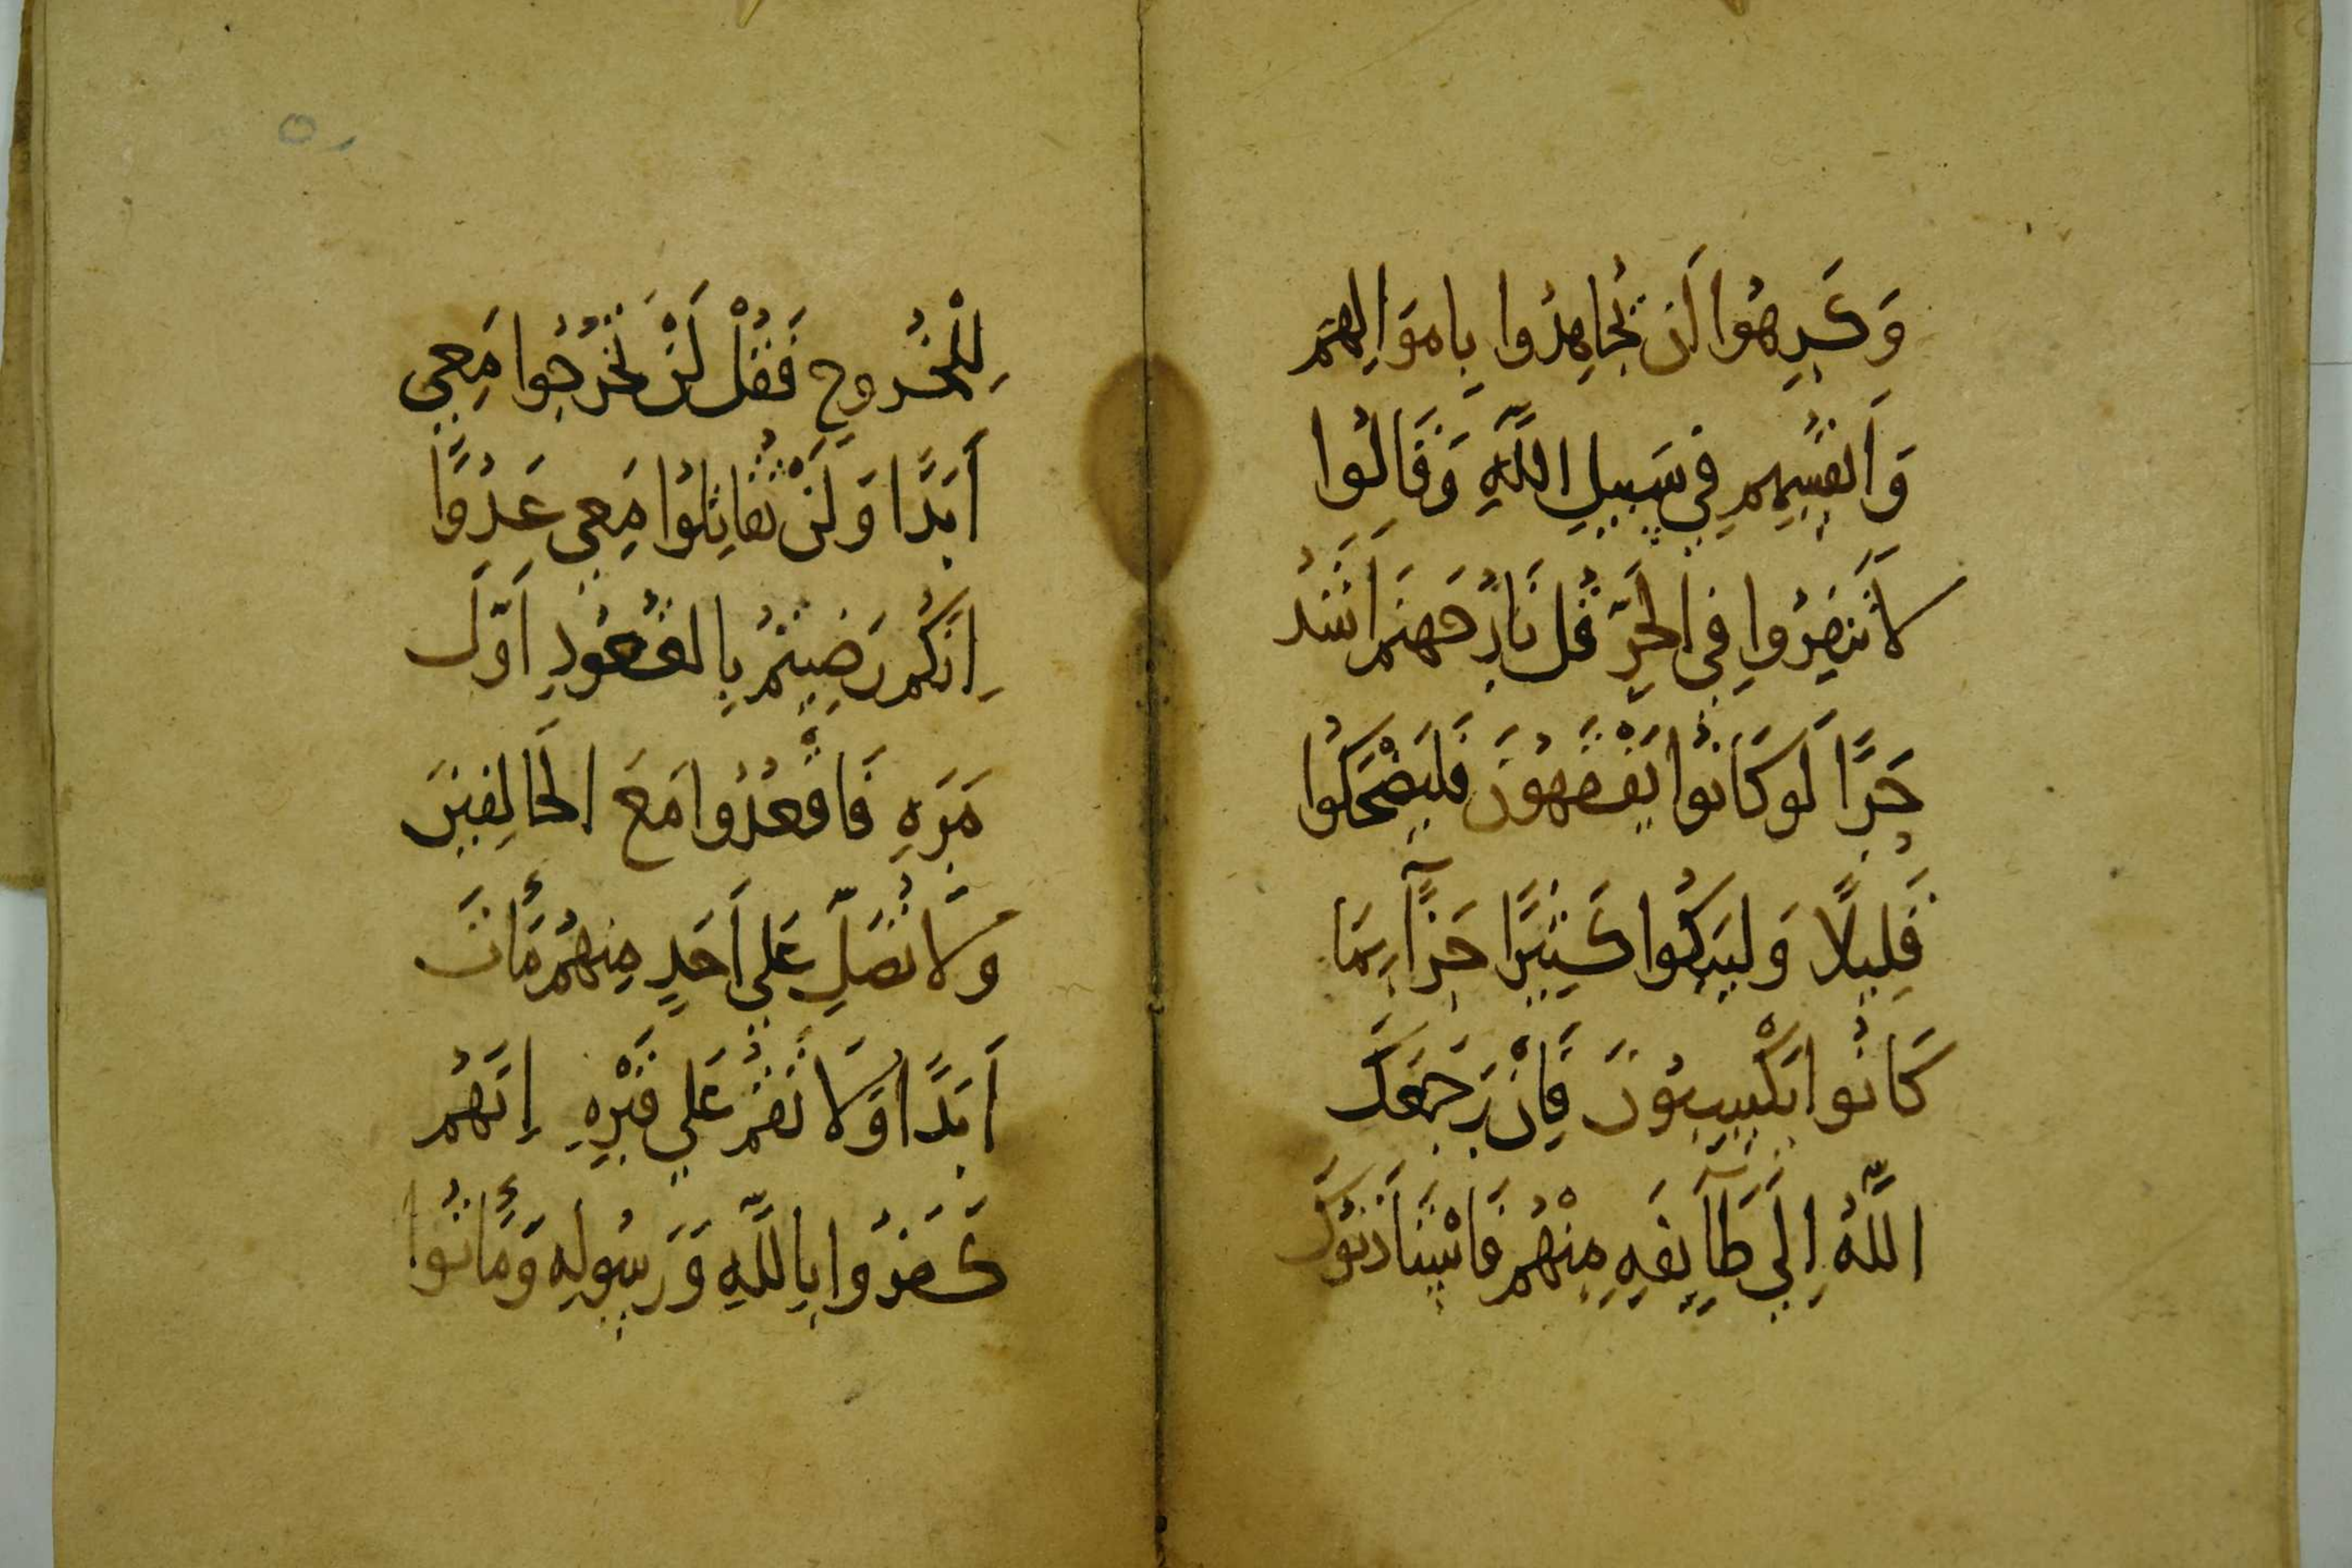 وَكَرِهُوا اَن يُجاهِدُوا بِامَوَالِهِمَ
وَاَنفُسِهِمِ فِي سَبِيلِ اللَّهِ وَقَالُوا
لاَ تَنفِرُوا فِي الحَرِّ قُل نَارُ جَهنم اَشَدُ
حَرًّا لَو كَانُوا يَفْقَهُونَ فَليَضْحَكُوا
قَلِيلًا وَليَبكُوا كَثِيرًا جَزآً بِمَا
كَانُوا يَكْسِبُونَ فَاِنْ رَجَعَكَ
اللَّهُ اِلَي طَآيِفَهٍ مِنْهُم فَاسْتَاذَنُوكَ
٥٠
لِلْخُروجِ فَقُلْ لَنْ تَخْرُجُوا مَعِي
اَبَدًا وَلَنْ تُقَاتِلُوا مَعِي عَدُوًّا
اِنَكُم رَضِيتُم بِالقُعُودِ اَوَّلَ
مَرَهٍ فَاقْعُدُوا مَعَ الخَالِفِينَ
وَلاَ تُصَلِّ عَلي اَحَدٍ مِنهُم مَّاتَ
اَبَدًا وَلَا تَقُم عَلي قَبْرِهِ اِنَهُم
كَفَرُوا بِاللَّهِ وَرَسُولِهِ وَمَاتُوا